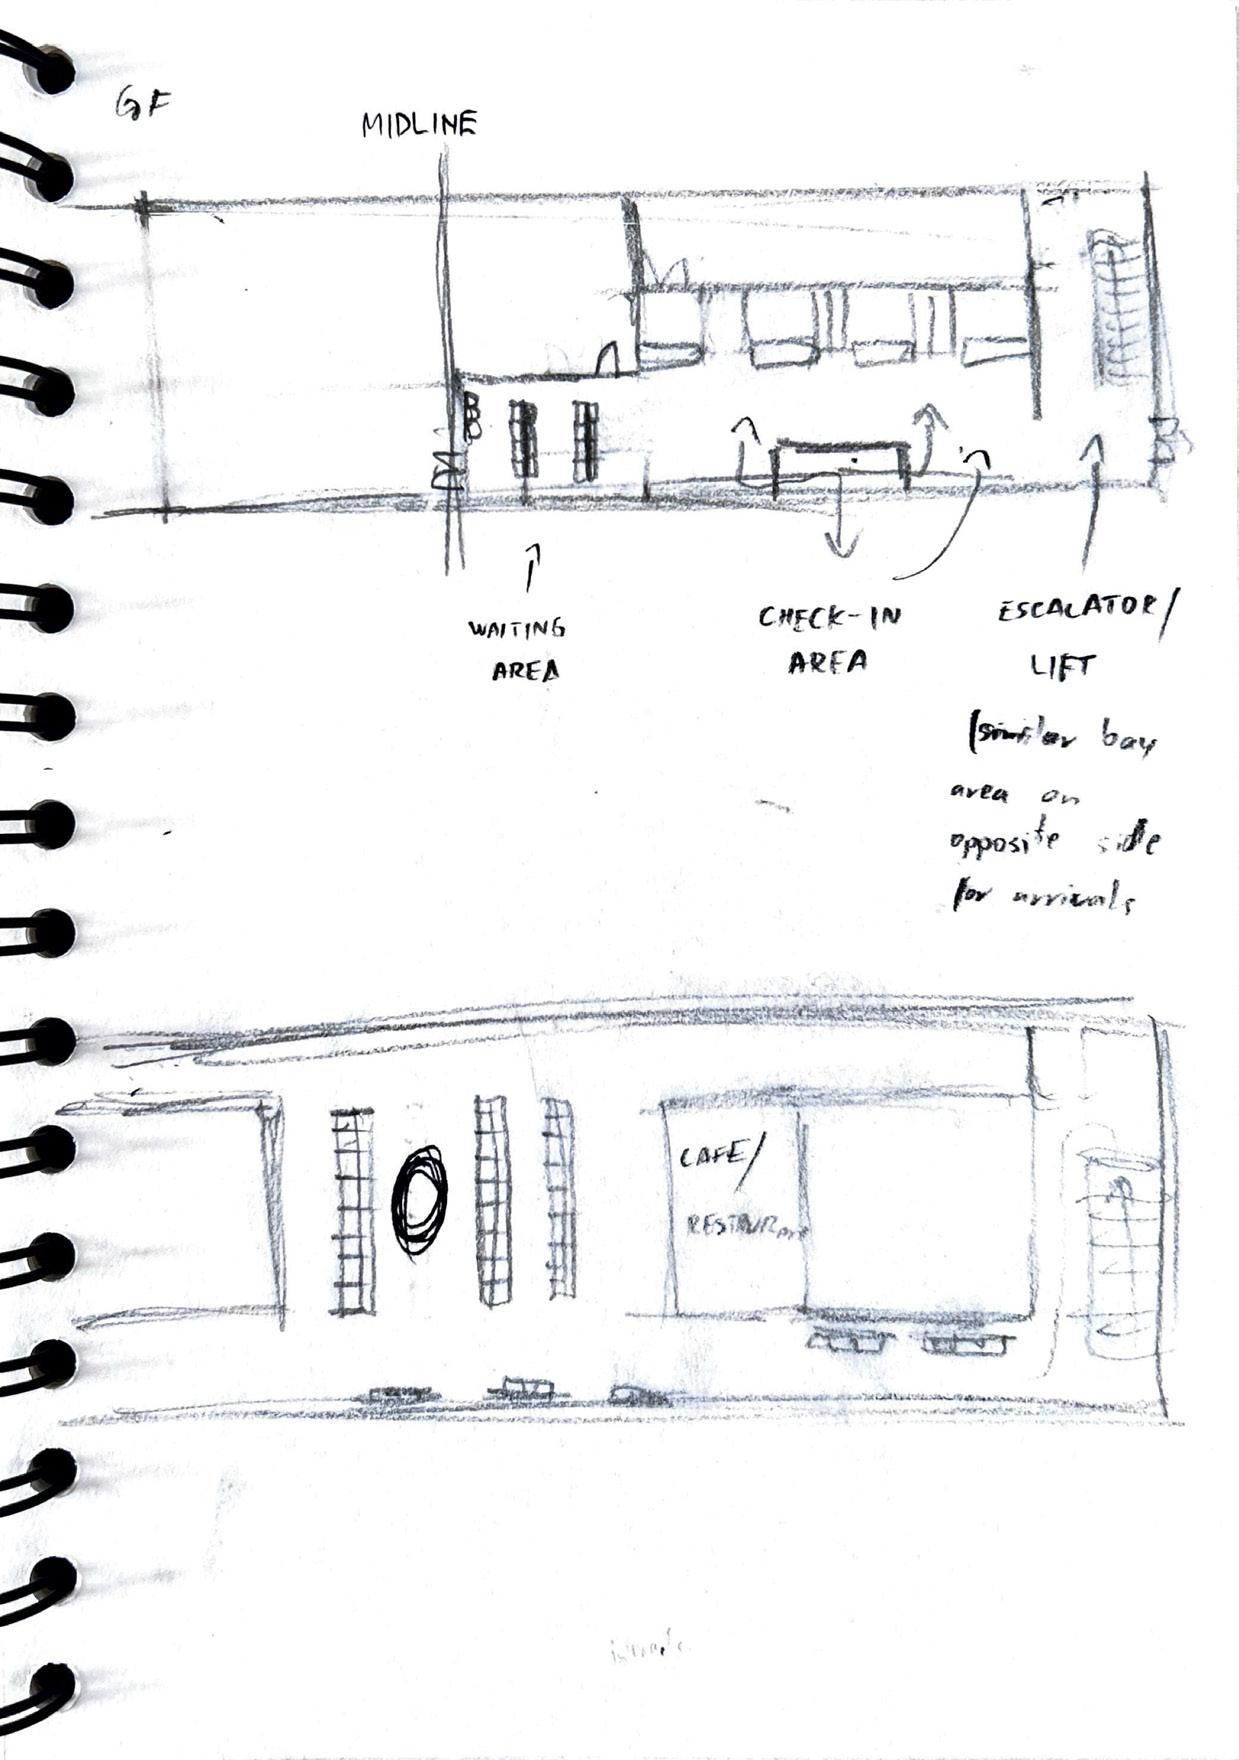 GF
MIDLINE
WAITING
AREA
CHECK-IN
AREA
ESCALATOR/
LIFT
(similar bay
area on
opposite side
for arrivals
CAFE/
RESTAURANT